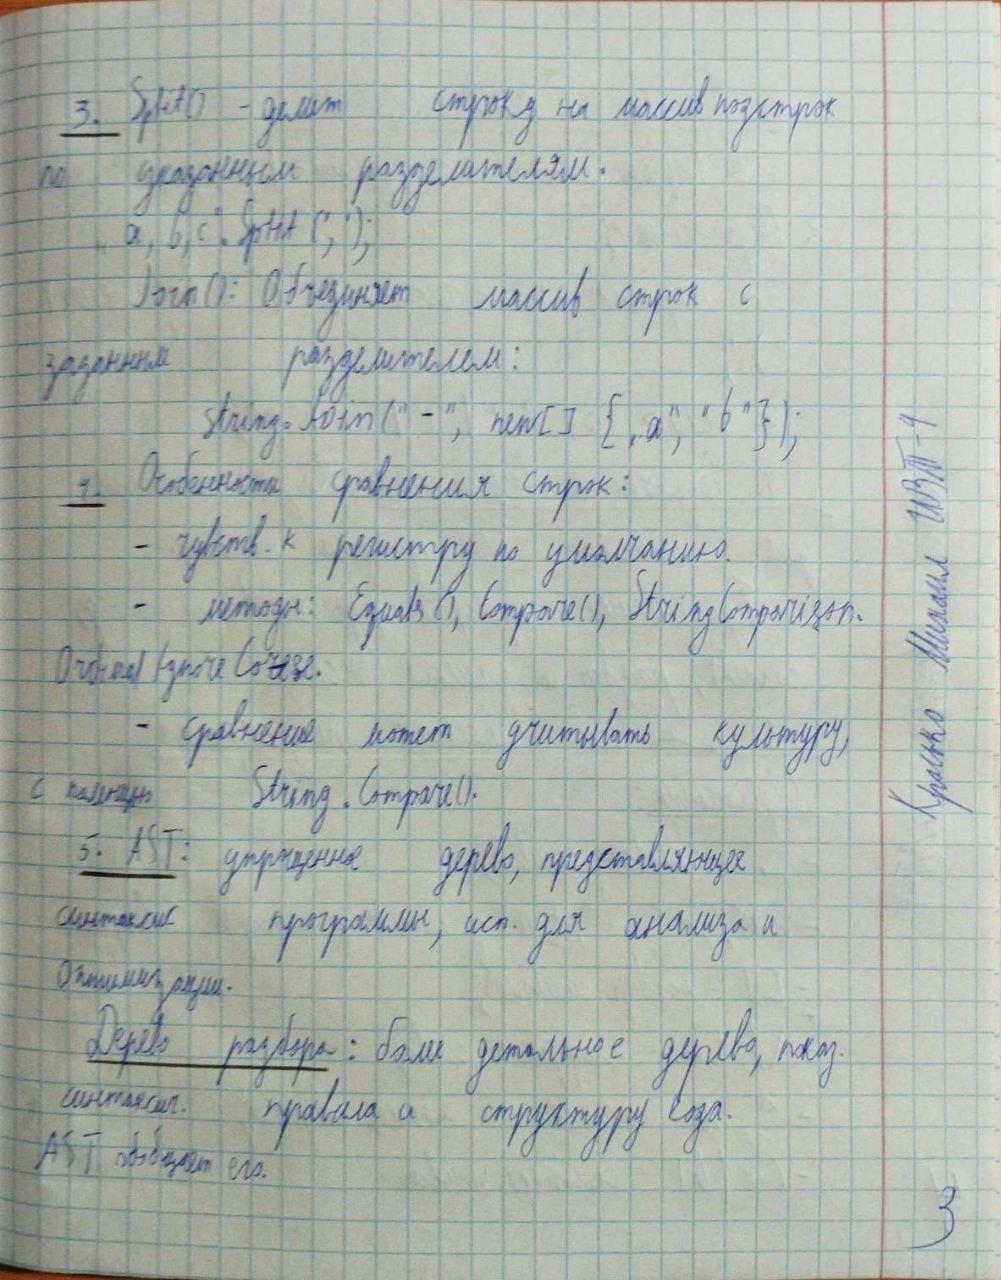 3. Split() - делит строку на массив подстрок
по указанным разделителям.
"a, b, c".Split(',');
Join(): Объединяет массив строк с
заданным разделителем:
String.Join("-", new[] {"a", "b"});
4. Особенности сравнения строк:
- чувств. к регистру по умолчанию.
- методы: Equals(), Compare(), StringComparison.
OrdinalIgnoreCase.
- сравнение может учитывать культуру,
с помощью String.Compare().
5. AST: упрощенное дерево, представляющее
синтаксис программы, исп. для анализа и
оптимизации.
Дерево разбора: более детальное дерево, показ.
синтаксич. правила и структуру кода.
AST обобщает его.
Михаил ИВТ-4
3